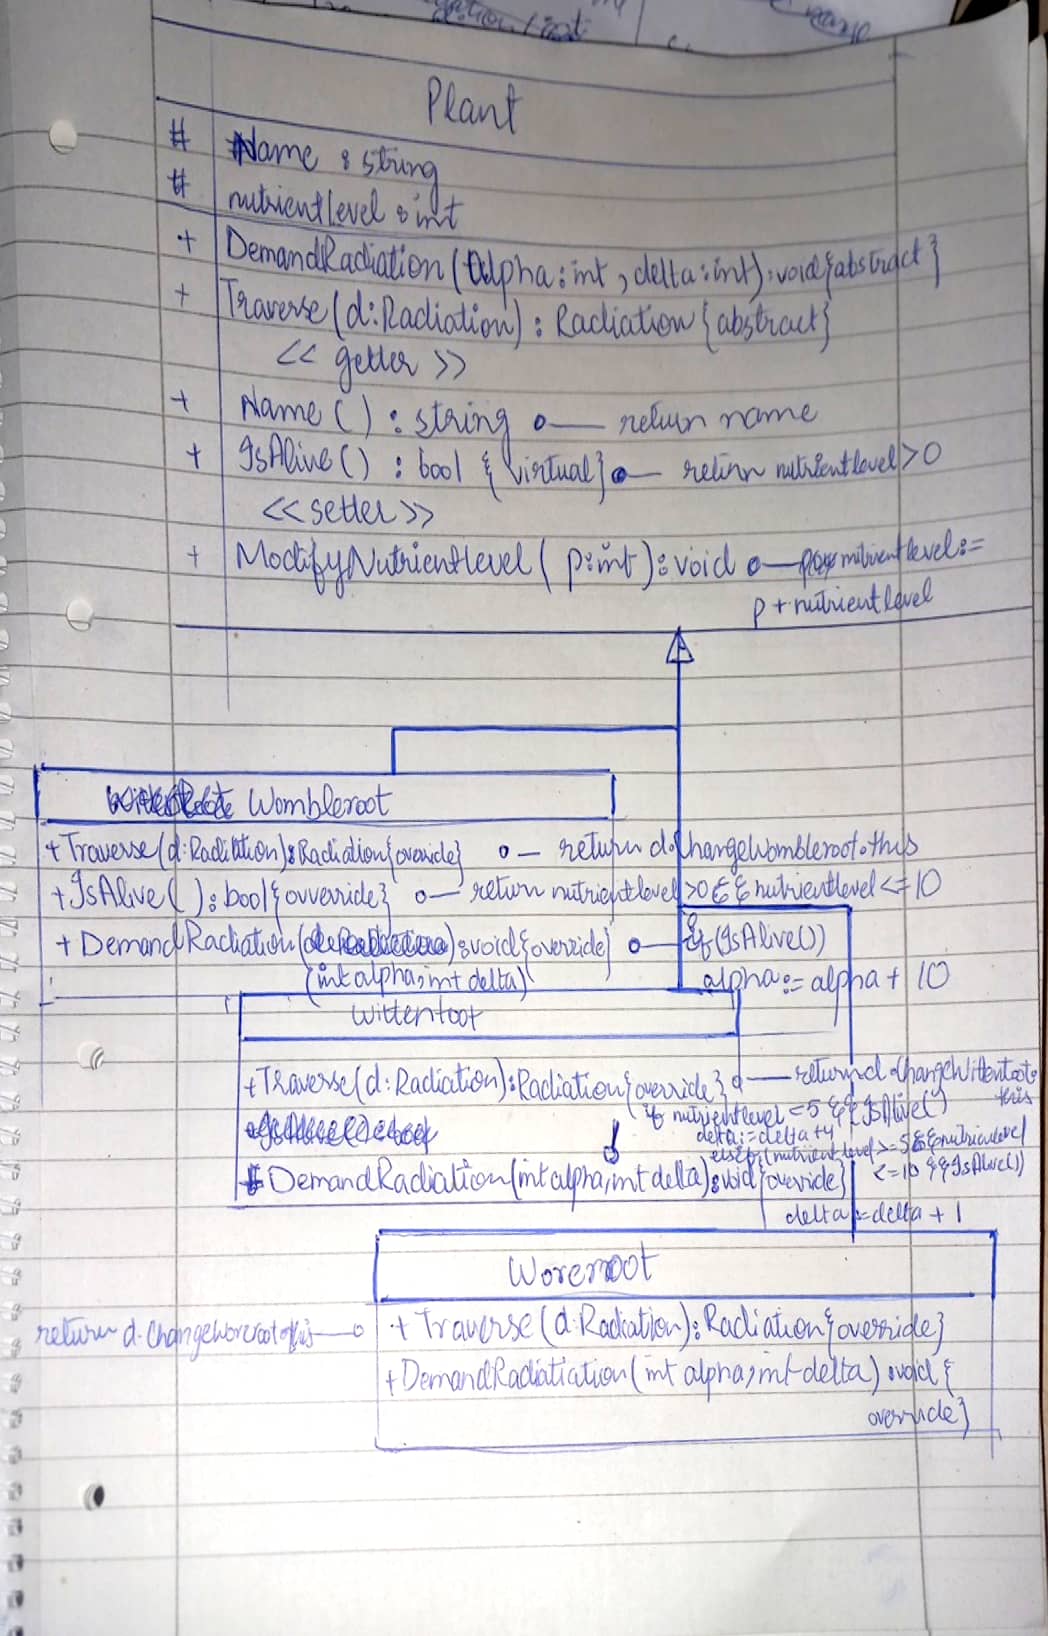 Plant
# Name : string
# nutrientlevel : int
+ DemandRadiation (alpha : int , delta : int) : void {abstract}
+ Traverse (d : Radiation) : Radiation {abstract}
<< getter >>
+ Name ( ) : string o— return name
+ IsAlive ( ) : bool { virtual } o— return nutrientlevel > 0
<< setter >>
+ ModifyNutrientlevel ( p : int ) : void o— nutrientlevel :=
p + nutrientlevel
Wombleroot
+ Traverse (d : Radiation) : Radiation {override} o— return d.ChangeWombleroot.this
+ IsAlive ( ) : bool {ovveride} o— return nutrientlevel > 0 && nutrientlevel <= 10
+ DemandRadiation ( ) : void {override} o— if (IsAlive())
(int alpha, int delta) alpha := alpha + 10
Wittentoot
+ Traverse (d : Radiation) : Radiation {override} o— return d.ChangeWittentoot.
this
if nutrientlevel <5 && IsAlive()
delta := delta + 4
else if (nutrientlevel >= 5 && nutrientlevel
DemandRadiation (int alpha, int delta) : void {override} <= 10 && IsAlive())
delta := delta + 1
Woreroot
return d.ChangeWoreroot.this —o + Traverse (d : Radiation) : Radiation {override}
+ DemandRadiatiation (int alpha, int delta) : void {
override}